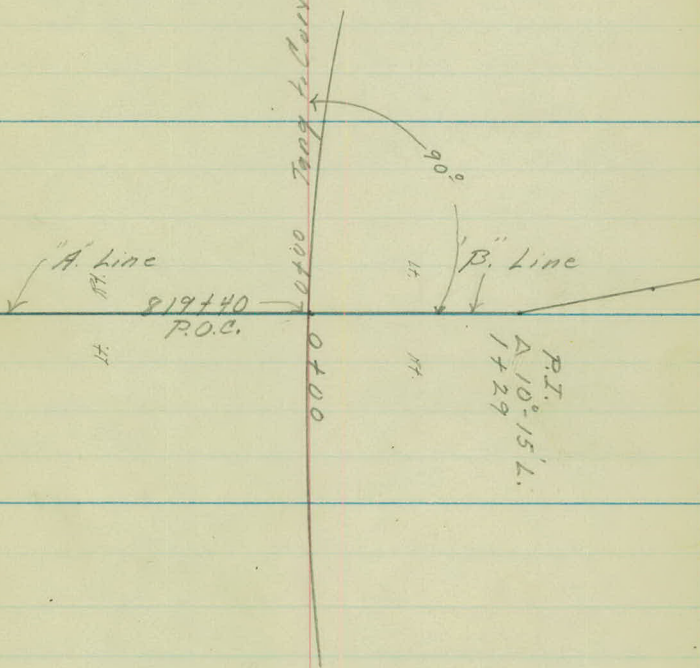 Tang. to Curv
90°
"A" Line
"B" Line
Rt.
Lt.
0+00
819+40
P.O.C.
Lt.
Rt.
0+00
P.I.
Δ 10°-15' L.
1+29